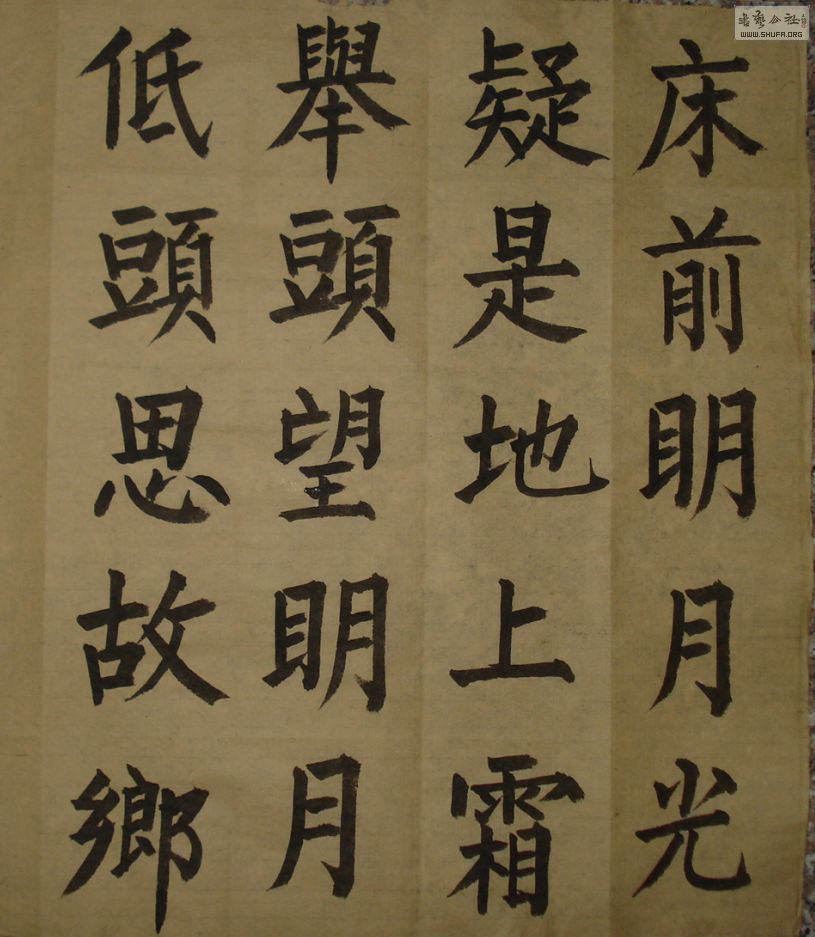 床前眀月光
疑是地上霜
舉頭望眀月
低頭思故鄉
書藝公社
WWW.SHUFA.ORG